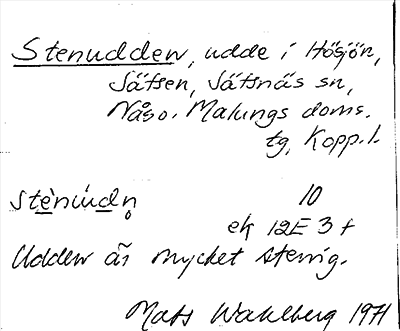 Stenudden, udde i Hösjön,
Sätsen, Sätsnäs sn,
Nås o. Malungs doms.
tg, Kopp. l.
ste`nu´dn̥ 10
ek 12E 3f
Udden är mycket stenig.
Mats Wahlberg 1971